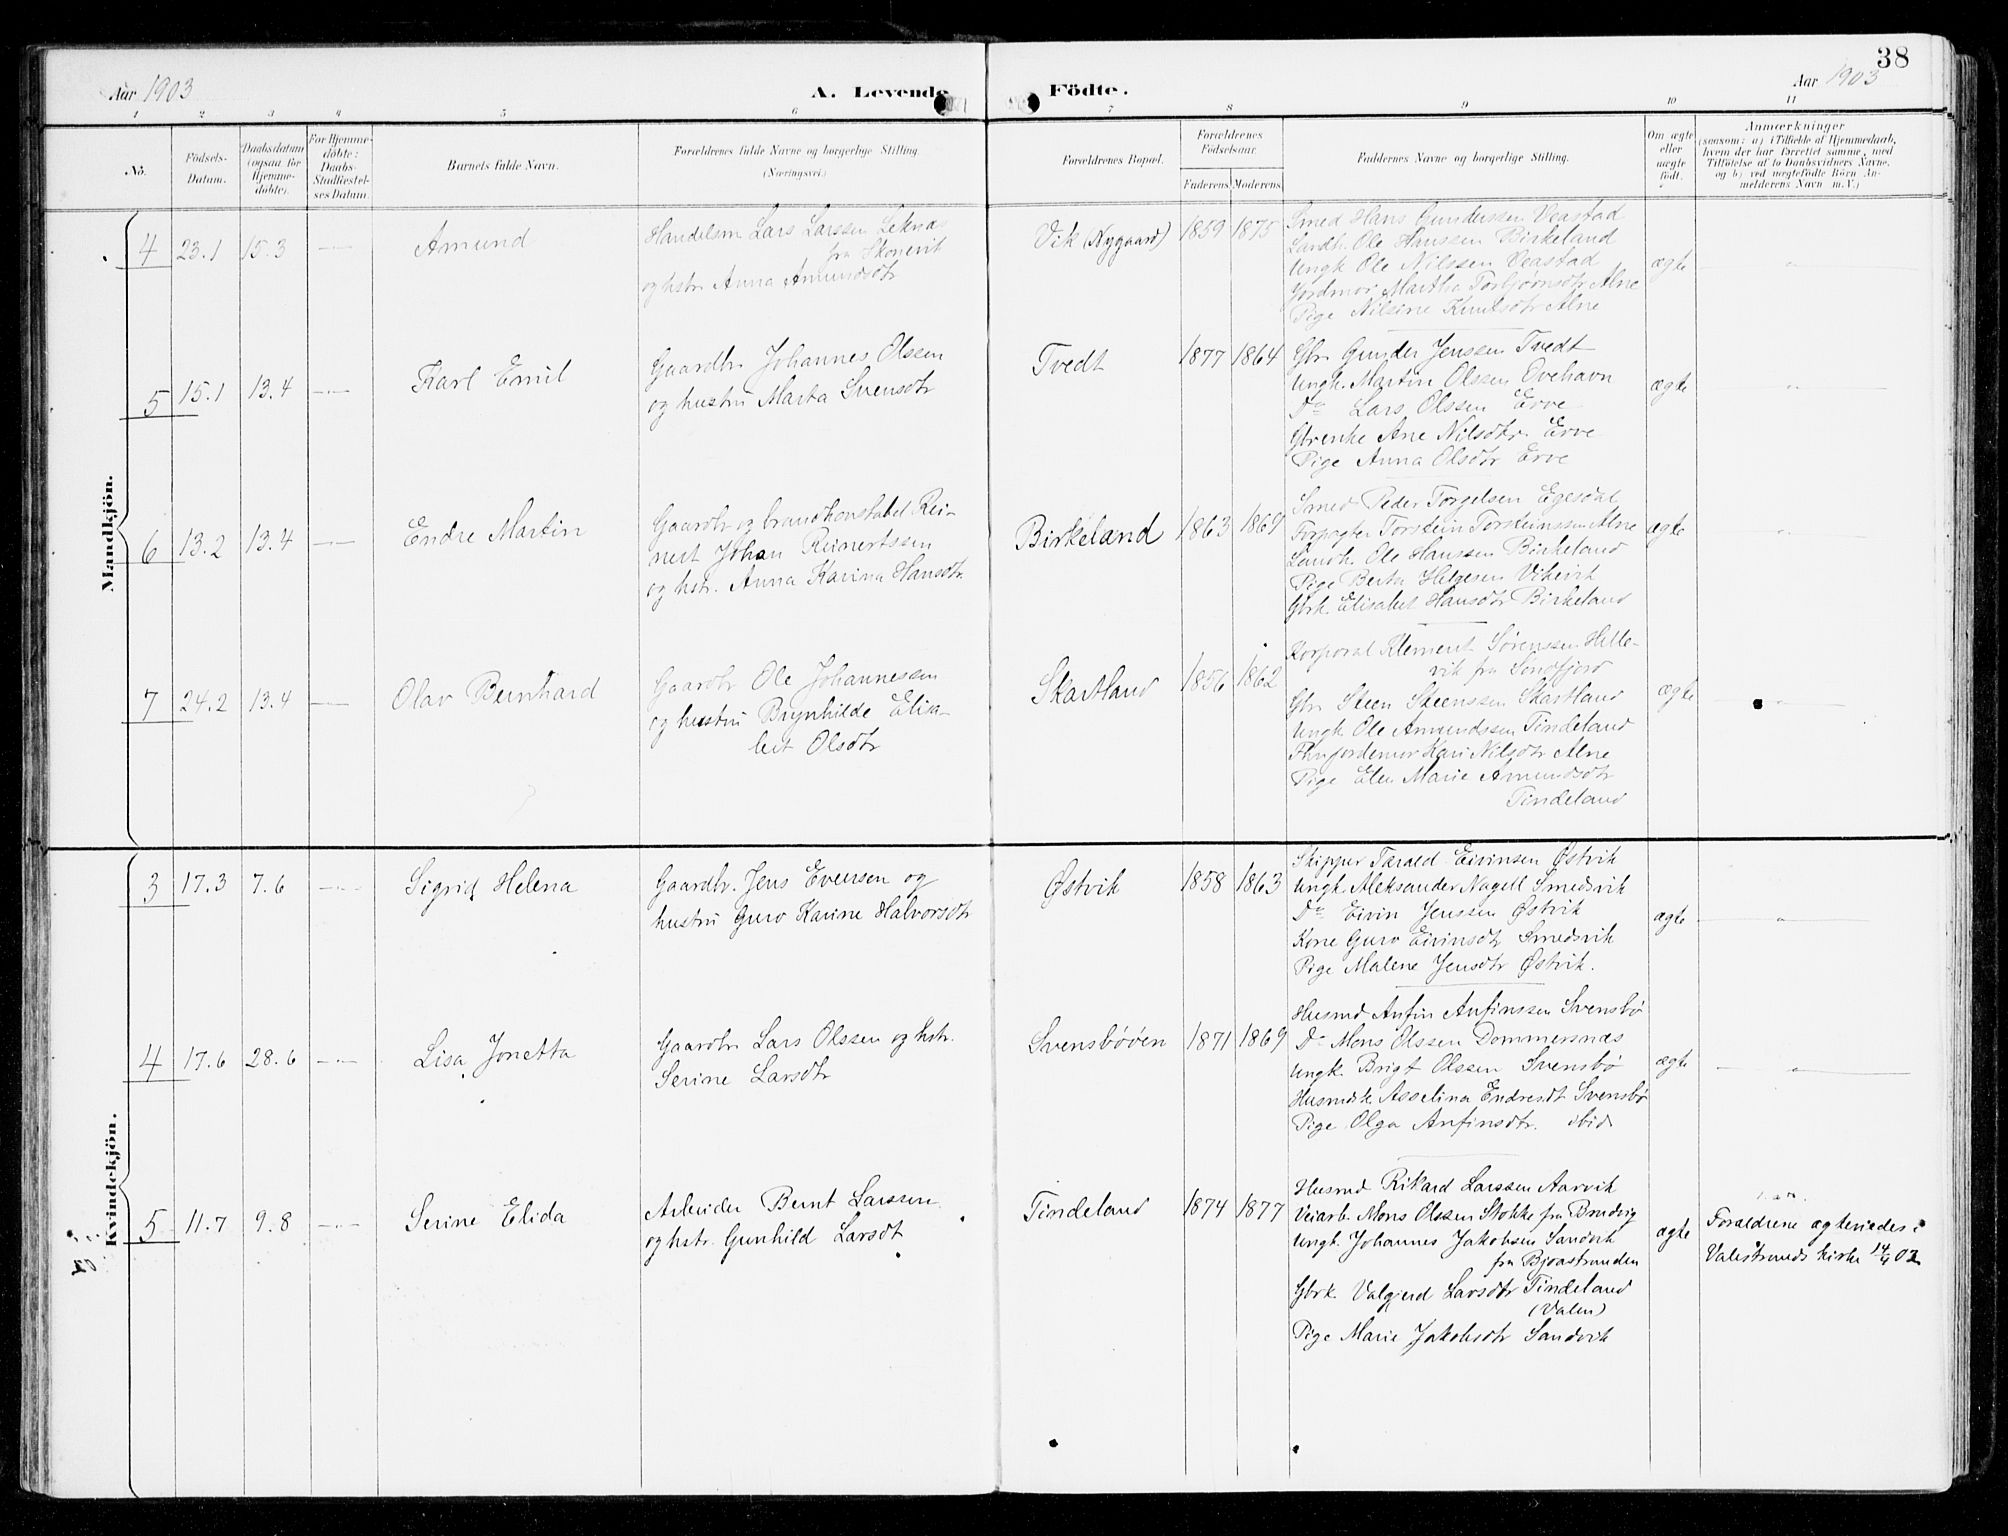 38
Aar 1903
A. Levende Födte.
Aar 1903
1 2 3 4 5 6 7 8 9 10 11
No.
Födsels-Datum.
Daabsdatum (ogsaa for Hjemme-döbte).
For Hjemme-döbte: Daabs-Stadfæstel-ses Datum.
Barnets fulde Navn.
Forældrenes fulde Navne og borgerlige Stilling.
(Næringsvei.)
Forældrenes Bopæl.
Forældrenes Födselsaar.
Faderens Moderens
Faddernes Navne og borgerlige Stilling.
Om ægte eller uægte födt.
Anmærkninger
(saasom: a) i Tilfælde af Hjemmedaab,
hvem der har forrettet samme, med
Tilföielse af to Daabsvidners Navne,
og b) ved uægtefödte Börn, An-
melderens Navn m.V.)
Mandkjön.
4 23.1 15.3 Amund
Handelsm Lars Larssen Leknæs
fra Skonevik
og hstr. Anna Amundsdtr
Vik (Nygaard) 1859 1875
Smed Hans Gunderssen Veastad
Landh. Ole Hanssen Birkeland
Ungk. Ole Nilssen Veastad
Jordmor Martha Torbjørnsdtr Alne
Pige Nilsine Knutsdtr Alne
ægte
5 15.1 13.4 Karl Emil
Gaardbr. Johannes Olssen
og hustru Marta Svensdtr
Tvedt 1877 1864
Gbr Gunder Jenssen Tvedt
Ungk. Martin Olssen Ovehavn
Do Lars Olssen Erve
Gbrenke Ane Nilsdtr. Erve
Pige Anna Olsdtr Erve
ægte
6 13.2 13.4 Endre Martin
Gaardbr og brandkonstabel Rei-
nert Johan Reinertssen
og hstr. Anna Karina Hansdtr.
Birkeland 1863 1869
Smed Peder Torgelsen Egesdal
Forpagter Torstein Torsteinssen Alne
Landh. Ole Hanssen Birkeland
Pige Berta Helgesen Vikevik
Gbrk. Elisabet Hansdtr Birkeland
ægte
7 24.2 13.4 Olav Bernhard
Gaardbr Ole Johannessen
og hustru Brynhilde Elisa-
bet Olsdtr
Skartland 1856 1862
Korporal Klement Sørenssen Hille-
vik fra Søndfjord
Gbr Steen Steenssen Skartland
Ungk. Ole Amundssen Tindeland
Fhv jordemor Kari Nilsdtr Alne
Pige Elen Marie Amundsdtr
Tindeland
ægte
Kvindekjön.
3 17.3 7.6 Sigrid Helena
Gaardbr. Jens Evensen og
hustru Guro Karine Halvorsdtr
Østvik 1858 1863
Skipper Tarald Eivinsen Østvik
Ungk. Aleksander Nagell Smedsvik
Do Eivin Jenssen Østvik
Kone Guro Eivinsdtr Smedsvik
Pige Malene Jensdtr Østvik.
ægte
4 17.6 28.6 Lisa Jonetta
Gaardbr Lars Olssen og hstr.
Serine Larsdtr
Svensbøøen 1871 1869
Husmd Anfin Anfinssen Svensbø
Do Mons Olssen Dommersnæs
Ungk. Brigt Olssen Svensbø
Husmdk. Asselina Endresdt Svensbø
Pige Olga Anfinsdtr. ibid
ægte
5 11.7 9.8 Serine Elida
Arbeider Bernt Larssen
og hstr. Gunhild Larsdt
Tindeland 1874 1877
Husmd Rikard Larssen Aarvik
Veiarb. Mons Olssen Stokke fra Bondvig
Ungk. Johannes Jakobsen Sandvik
fra Bjoastranden
Gbrk. Valgjerd Larsdtr Tindeland
(Valen)
Pige Marie Jakobsdtr Sandvik
ægte
Forældrene ægteviedes i
Valestrands kirke 14/9 02